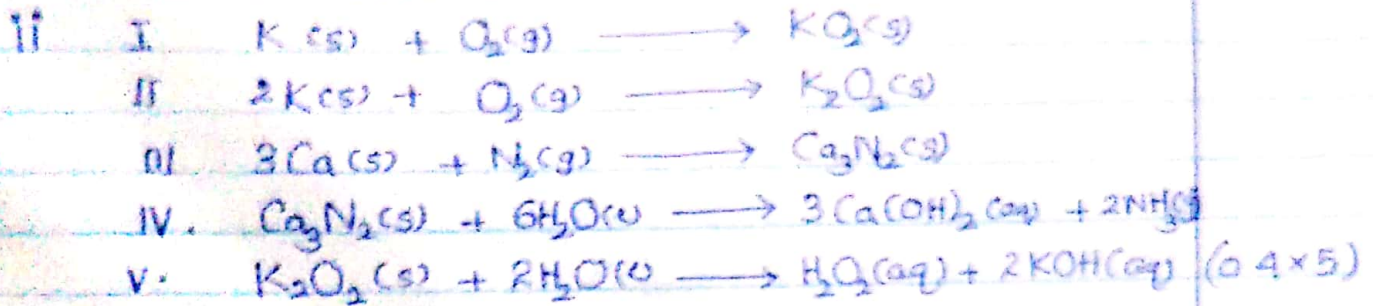 ii I K (s) + O₂(g) ⟶ KO₂(s)
II 2K(s) + O₂(g) ⟶ K₂O₂(s)
III 3Ca(s) + N₂(g) ⟶ Ca₃N₂(s)
IV. Ca₃N₂(s) + 6H₂O(l) ⟶ 3Ca(OH)₂(aq) + 2NH₃(g)
V. K₂O₂(s) + 2H₂O(l) ⟶ H₂O₂(aq) + 2KOH(aq) (04×5)